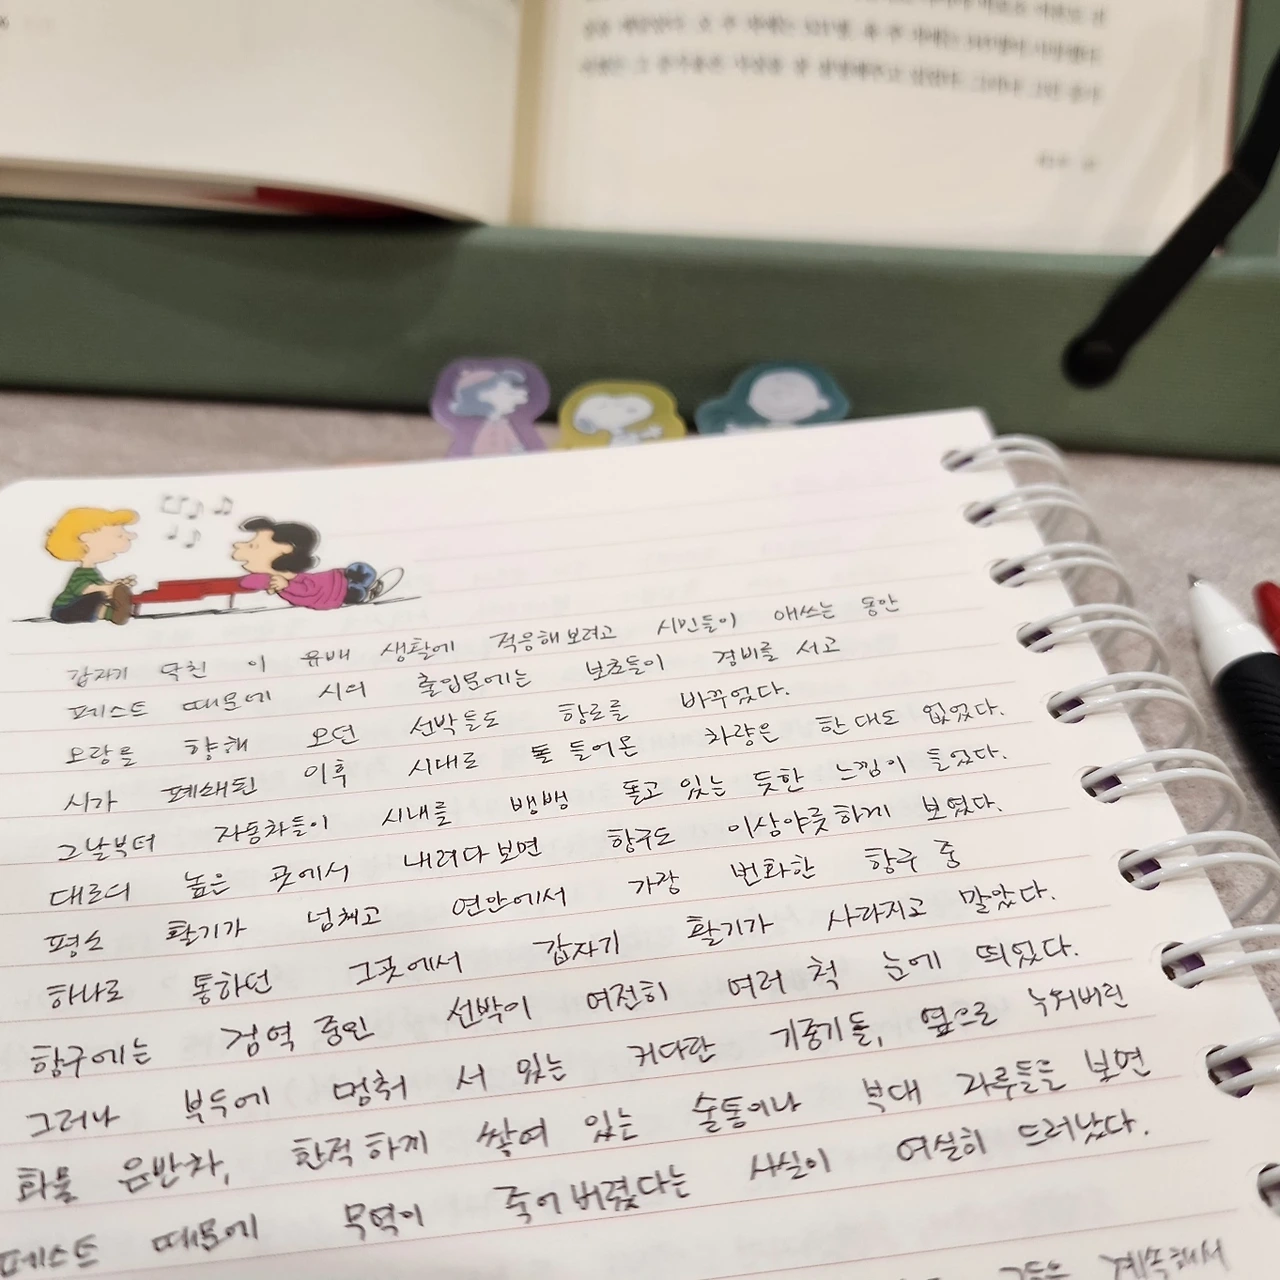 갑자기 닥친 이 유배 생활에 적응해보려고 시민들이 애쓰는 동안
페스트 때문에 시의 출입문에는 보초들이 경비를 서고
오랑을 향해 오던 선박들도 항로를 바꾸었다.
시가 폐쇄된 이후 시대로 돌 들어온 차량은 한 대도 없었다.
그날부터 자동차들이 시내를 뱅뱅 돌고 있는 듯한 느낌이 들었다.
대로의 높은 곳에서 내려다보면 항구도 이상야릇하게 보였다.
평소 활기가 넘쳐고 연안에서 가장 번화한 항구 중
하나로 통하던 그곳에서 갑자기 활기가 사라지고 말았다.
항구에는 검역 중인 선박이 여전히 여러 척 눈에 띄었다.
그러나 부두에 멈춰 서 있는 커다란 기중기들, 옆으로 누워버린
화물 운반차, 한적하게 쌓여 있는 술통이나 부대 자루들을 보면
페스트 때문에 무역이 죽어버렸다는 사실이 여실히 드러났다.
그들은 계속해서